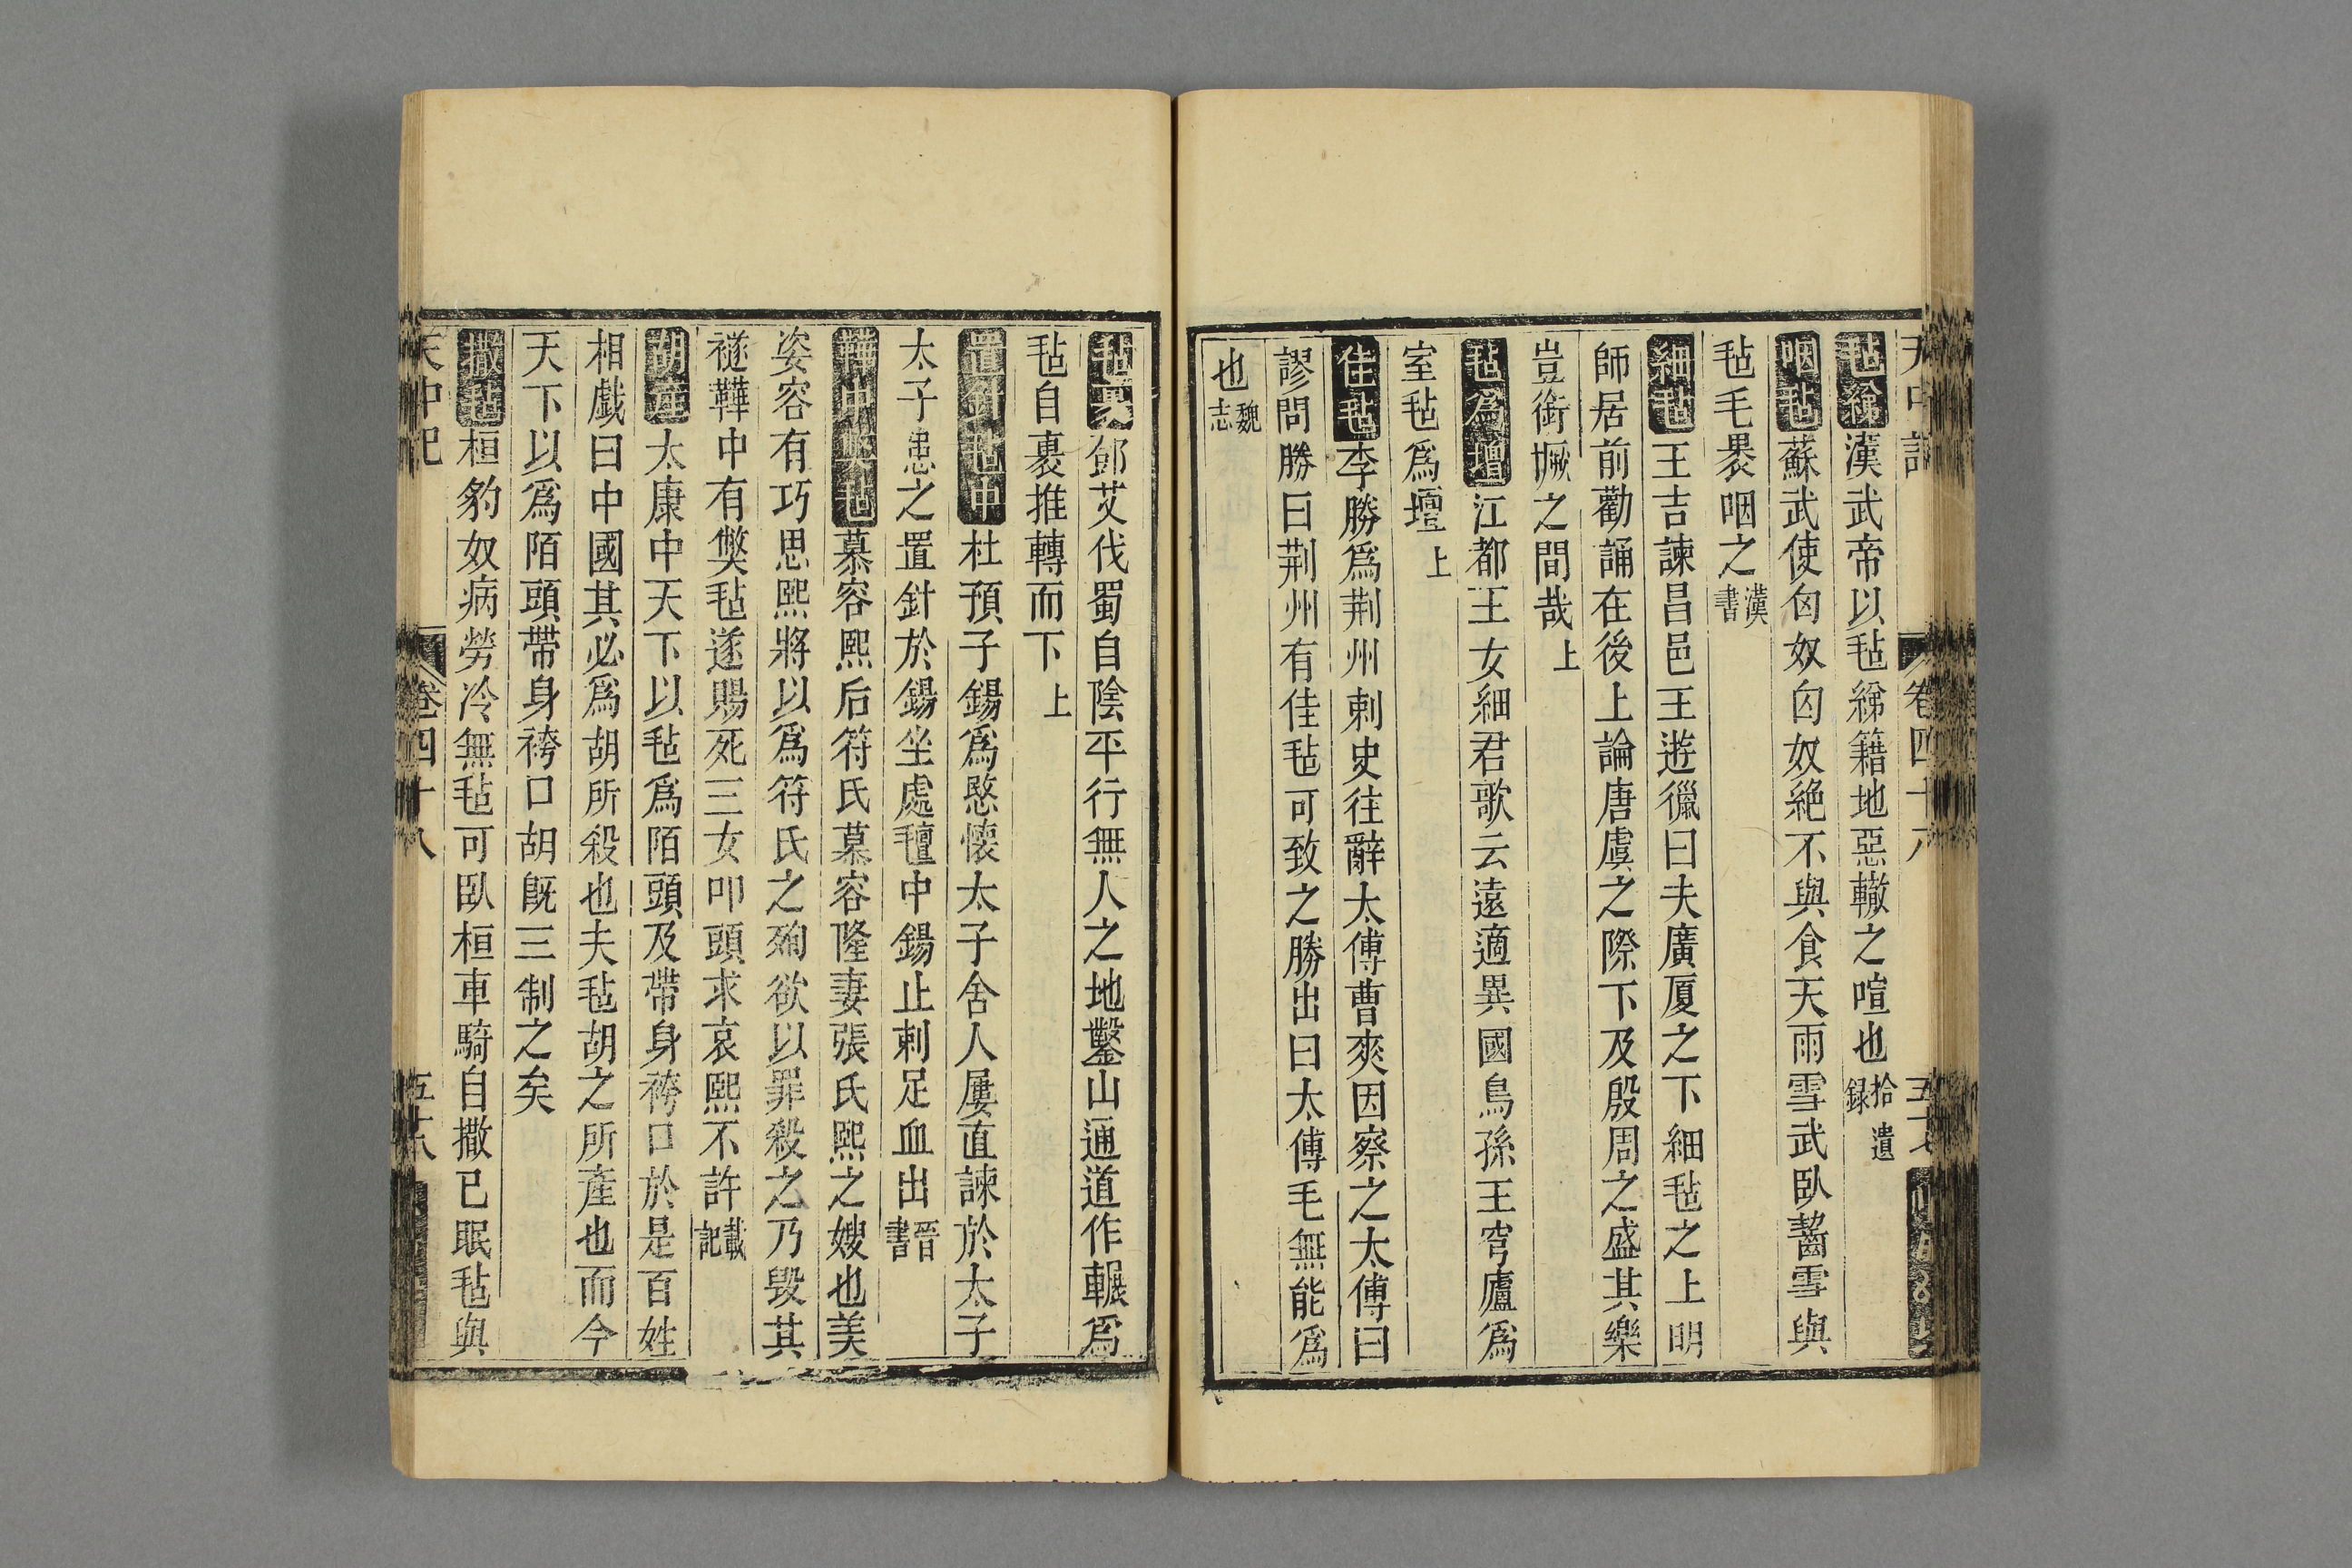 天中記 卷四十八 五十七
毡綈漢武帝以毡綈籍地惡轍之喧也拾遺録
咽毡蘇武使匈奴匈奴絶不與食天雨雪武臥齧雪與
毡毛褁咽之漢書
細毡王吉諫昌邑王遊獵曰夫廣厦之下細毡之上明
師居前勸誦在後上論唐虞之際下及殷周之盛其樂
豈銜橛之間哉上
毡為墻江都王女細君歌云遠適異國烏孫王穹廬爲
室毡爲壇上
佳毡李勝爲荆州刺史往辭太傅曹爽因察之太傅曰
謬問勝曰荆州有佳毡可致之勝出曰太傅毛無能爲
也魏志
毡裹鄧艾伐蜀自陰平行無人之地鑿山通道作輾爲
毡自裹推轉而下上
置針毡中杜預子錫爲愍懷太子舍人屢直諫於太子
太子患之置針於錫坐處氊中錫止刺足血出晉書
鞾中弊毡慕容熙后符氏慕容隆妻張氏熙之嫂也美
姿容有巧思熙將以爲符氏之殉欲以罪殺之乃毀其
襚鞾中有弊毡遂賜死三女叩頭求哀熙不許載記
胡産太康中天下以毡爲陌頭及帶身袴口於是百姓
相戲曰中國其必爲胡所殺也夫毡胡之所産也而今
天下以爲陌頭帶身袴口胡旣三制之矣
撒毡桓豹奴病勞冷無毡可臥桓車騎自撒已眠毡與
天中記 卷四十八 五十八